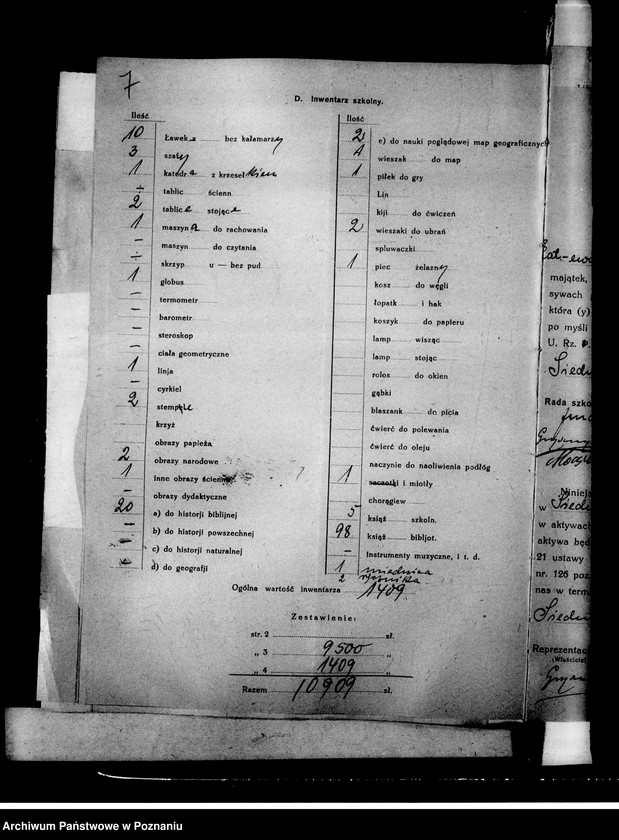 7
D. Inwentarz szkolny.
Ilość
10 Ławek bez kałamarzy
3 szafy
1 katedra z krzesełkiem
÷ tablic ścienn
2 tablice stojące
1 maszyna do rachowania
– maszyn do czytania
÷ skrzyp u — bez pud
1 globus
– termometr
– barometr
– steroskop
– ciała geometryczne
1 linja
– cyrkiel
2 stemple
krzyż
obrazy papieża
2 obrazy narodowe
1 inne obrazy ścienne
– obrazy dydaktyczne
20 a) do historji biblijnej
– b) do historji powszechnej
c) do historji naturalnej
d) do geografji
Ilość
2 e) do nauki poglądowej map geograficznych
1 wieszak do map
1 piłek do gry
Lin
kiji do ćwiczeń
2 wieszaki do ubrań
spluwaczki
1 piec żelazny
kosz do węgli
łopatk i hak
koszyk do papieru
lamp wisząc
lamp stojąc
rolos do okien
gąbki
blaszank do picia
ćwierć do polewania
ćwierć do oleju
naczynie do naoliwienia podłóg
1 szczotki i miotły
chorągiew
5 książ szkoln.
98 książ bibljot.
– instrumenty muzyczne, i t. d.
1 miednica
2 ręcznika
Ogólna wartość inwentarza 1409
Zestawienie:
str. 2 zł.
„ 3 9500 „
„ 4 1409 „
Razem 10909 zł.
majątek,
sywach
która (y)
po myśli
U. Rz. P.
Siedl
Rada szko
Niniej
w Siedl
w aktywach
aktywa będ
21 ustawy
nr. 126 poz
nas w term
Siedl
Reprezentac
(Właściciel
Archiwum Państwowe w Poznaniu